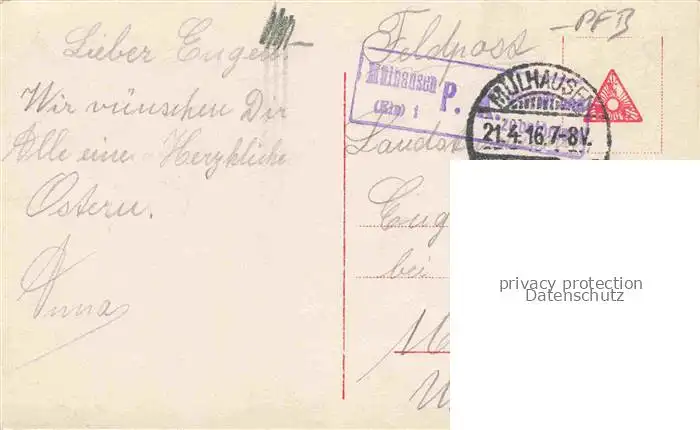 Lieber Eugen.
Wir wünschen Dir
Alle eine Herzkliche
Ostern.
Anna
PFB
Feldpost
Mülhausen
(Els) 1
P.
MÜLHAUSEN
21.4.16.7-8V.
Eug
bei
privacy protection
Datenschutz